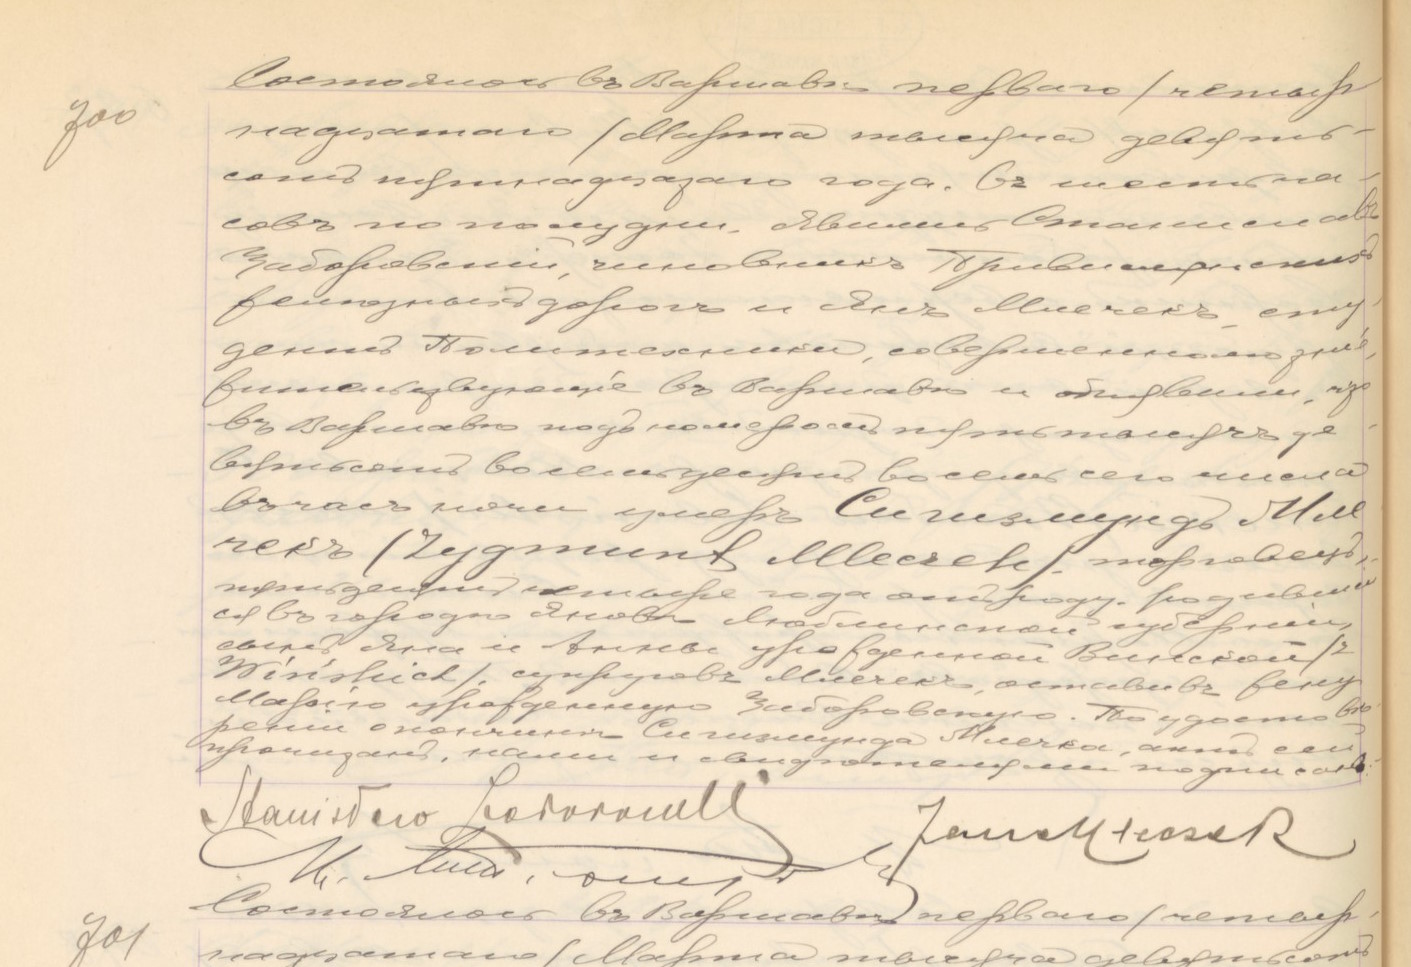 700
Состоялось въ Варшавѣ перваго /четыр-
надцатаго/ Марта тысяча девять-
сотъ тринадцатаго года. въ шесть ча-
совъ по полудни. Явились Станиславъ
Заборовскій, чиновникъ Привислинскихъ
желѣзныхъ дорогъ и Янъ Млечекъ, сту-
дентъ Политехники, совершеннолѣтніе,
жительствующіе въ Варшавѣ и объявили, что
въ Варшавѣ подъ номеромъ пять тысячъ де-
вятьсотъ восемьдесятъ восемь сего числа
въ часъ ночи умеръ Сигизмундъ Мле-
чекъ /Zygmunt Mleczek/. торговецъ,
пятьдесятъ четыре года отъ роду. родивший-
ся въ городѣ Яновѣ Люблинской губерніи,
сынъ Яна и Анны урожденной Винской /z
Wińskich/. супруговъ Млечекъ, оставивъ жену
Марію урожденную Заборовскую. По удостовѣ-
реніи о кончинѣ Сигизмунда Млечка, актъ сей
прочитанъ, нами и свидѣтелями подписанъ.
Stanisław Zaborowski Jan Mleczek
701
Состоялось въ Варшавѣ перваго /четыр-
надцатаго/ Марта тысяча девятьсотъ